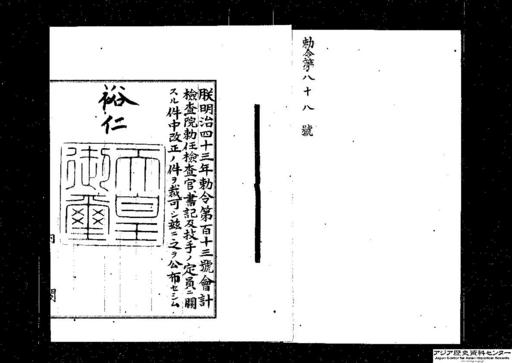 勅令第八十八號
朕明治四十三年勅令第百十三號會計
檢査院勅任檢査官、書記及技手ノ定員ニ關
スル件中改正ノ件ヲ裁可シ玆ニ之ヲ公布セシム
裕仁
天皇御璽
内閣
アジア歴史資料センター
Japan Center for Asian Historical Records